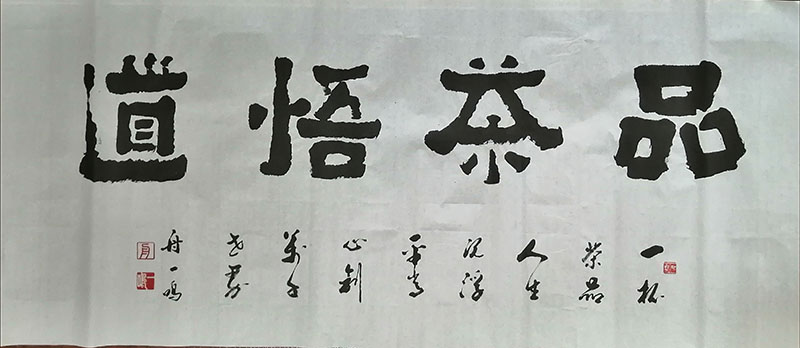 品茶悟道
一杯
茶品
人生
沉浮
平常
心創
萬千
世界
舟一鳴